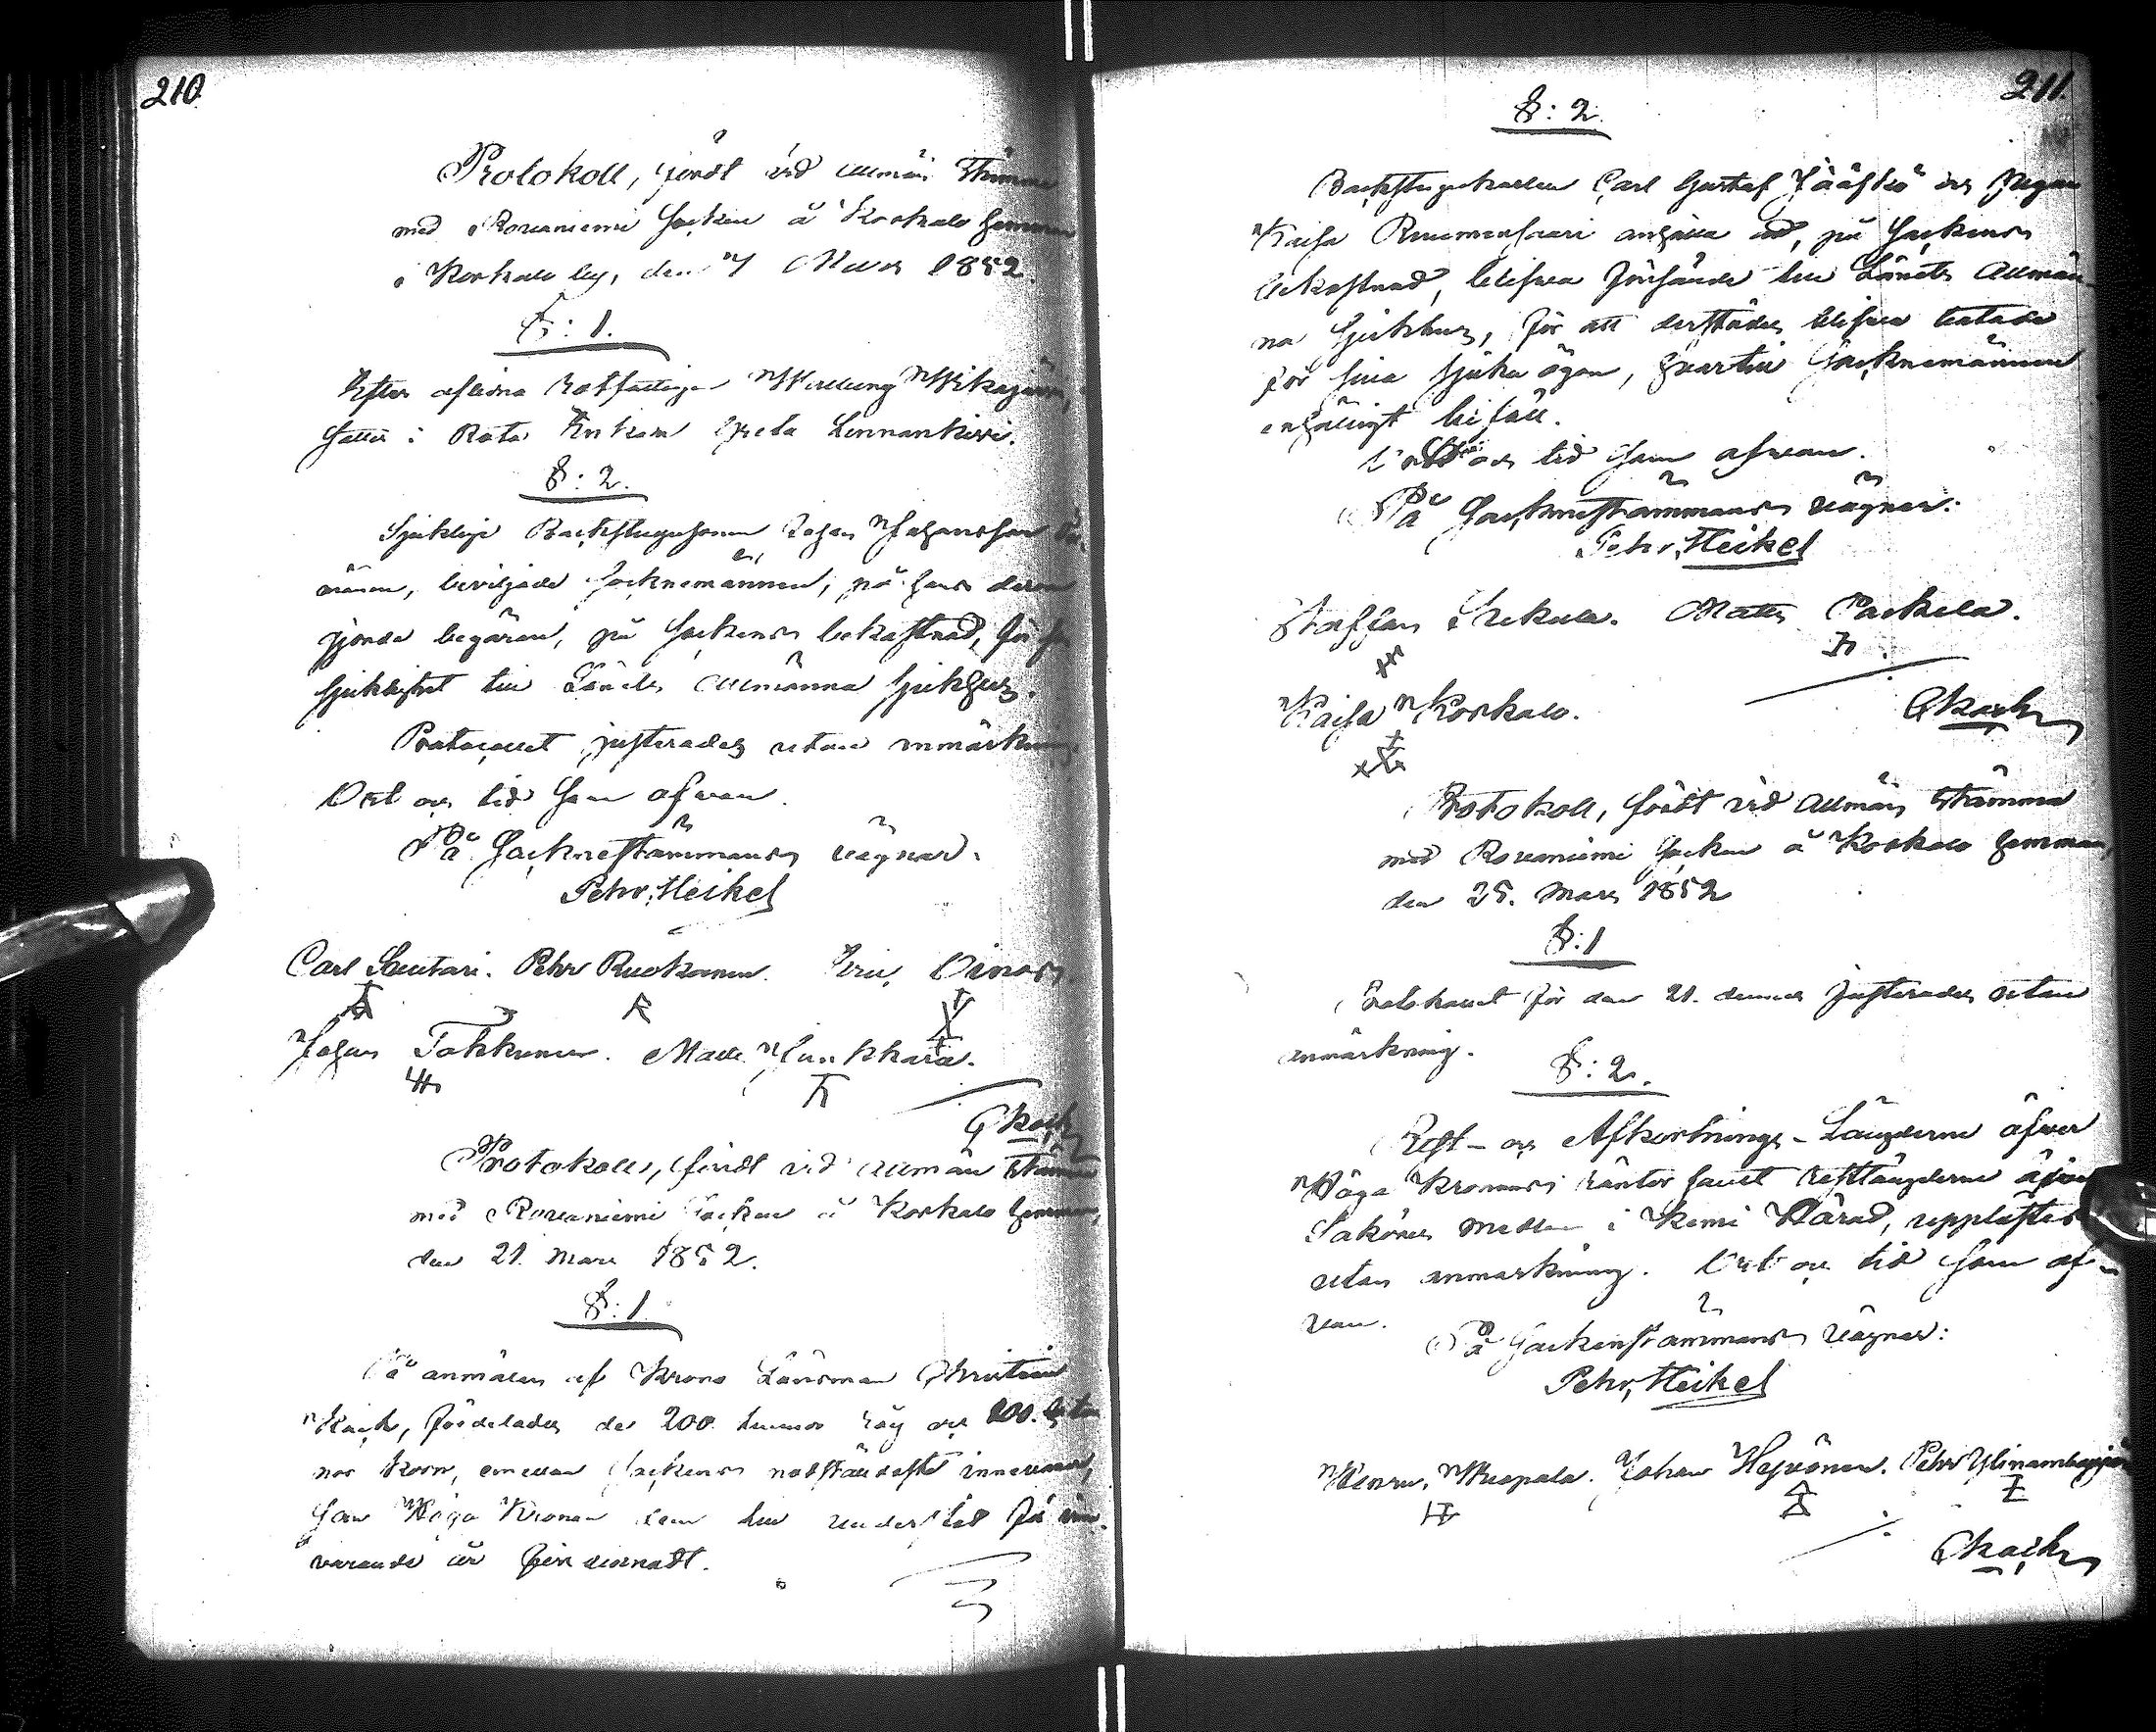 210.
Protokoll, fördt vid allmän stämma
med Rovaniemi Socken å Korkalo hemman
i Korkalo by, den 7 Mars 1852.
§: 1.
Efter aflidna Rotfattiga Wikajärvi,
sattes i Rota Enkan Greta Linnankivi.
§: 2.
Sjuklige Backstugusonen Johan Johansson
beviljade Socknemännen, på hans derom
gjorda begäran, på Sockens bekostnad, för sin
sjuklighet till Länets Allmänna Sjukhus.
Protocollet justerades utan anmärkning.
Ort och tid som ofvan.
På Socknestämmans vägnar.
Pehr Heikel
Carl Sautari. Pehr Ruokanen. Eric Oinas.
Johan Tokkinen. Matts Junkkara.
C Koch
Protokoll, fördt vid allmän stämma
med Rovaniemi Socken å Korkalo hemman,
den 21. Mars 1852.
§: 1.
På anmälan af Krono Länsman Christian
Koch, fördelades de 200. tunnor råg och 200. tun
nor korn, emellan Sockens nödställdaste innevånare,
som Höga Kronan dem till understöd för inne-
varande år försträckt.
211.
§: 2.
Backstugukarlen Carl Gustaf Jääskö och Pigan
Kaisa Ruumensaari anhålla att, på Sockens
bekostnad, blifva försände till Länets Allmän-
na Sjukhus, för att derstädes blifva botade
för sina sjuka ögon, hvartill Socknemännen
enhälligt biföll.
Ort och tid som ofvan.
På Socknestämmans vägnar:
Pehr Heikel
Staffan Matts Paekila.
Kaisa Korkalo.
C Koch
Protokoll, fördt vid allmän stämma
med Rovaniemi Socken å Korkalo hemman,
den 25. Mars 1852
§: 1
Protokollet för den 21. dennes justerades utan
anmärkning.
§: 2.
Rest- och Afkortnings-Längderne öfver
Höga Kronans räntor samt restlängderne öfver
Saköres medlen i Kemi Härad, upplästes
utan anmärkning. Ort och tid som of-
van.
På Sockenstämmans vägnar:
Pehr Heikel
Henric Johan Hesvönen. Pehr Ylinampa
C Koch